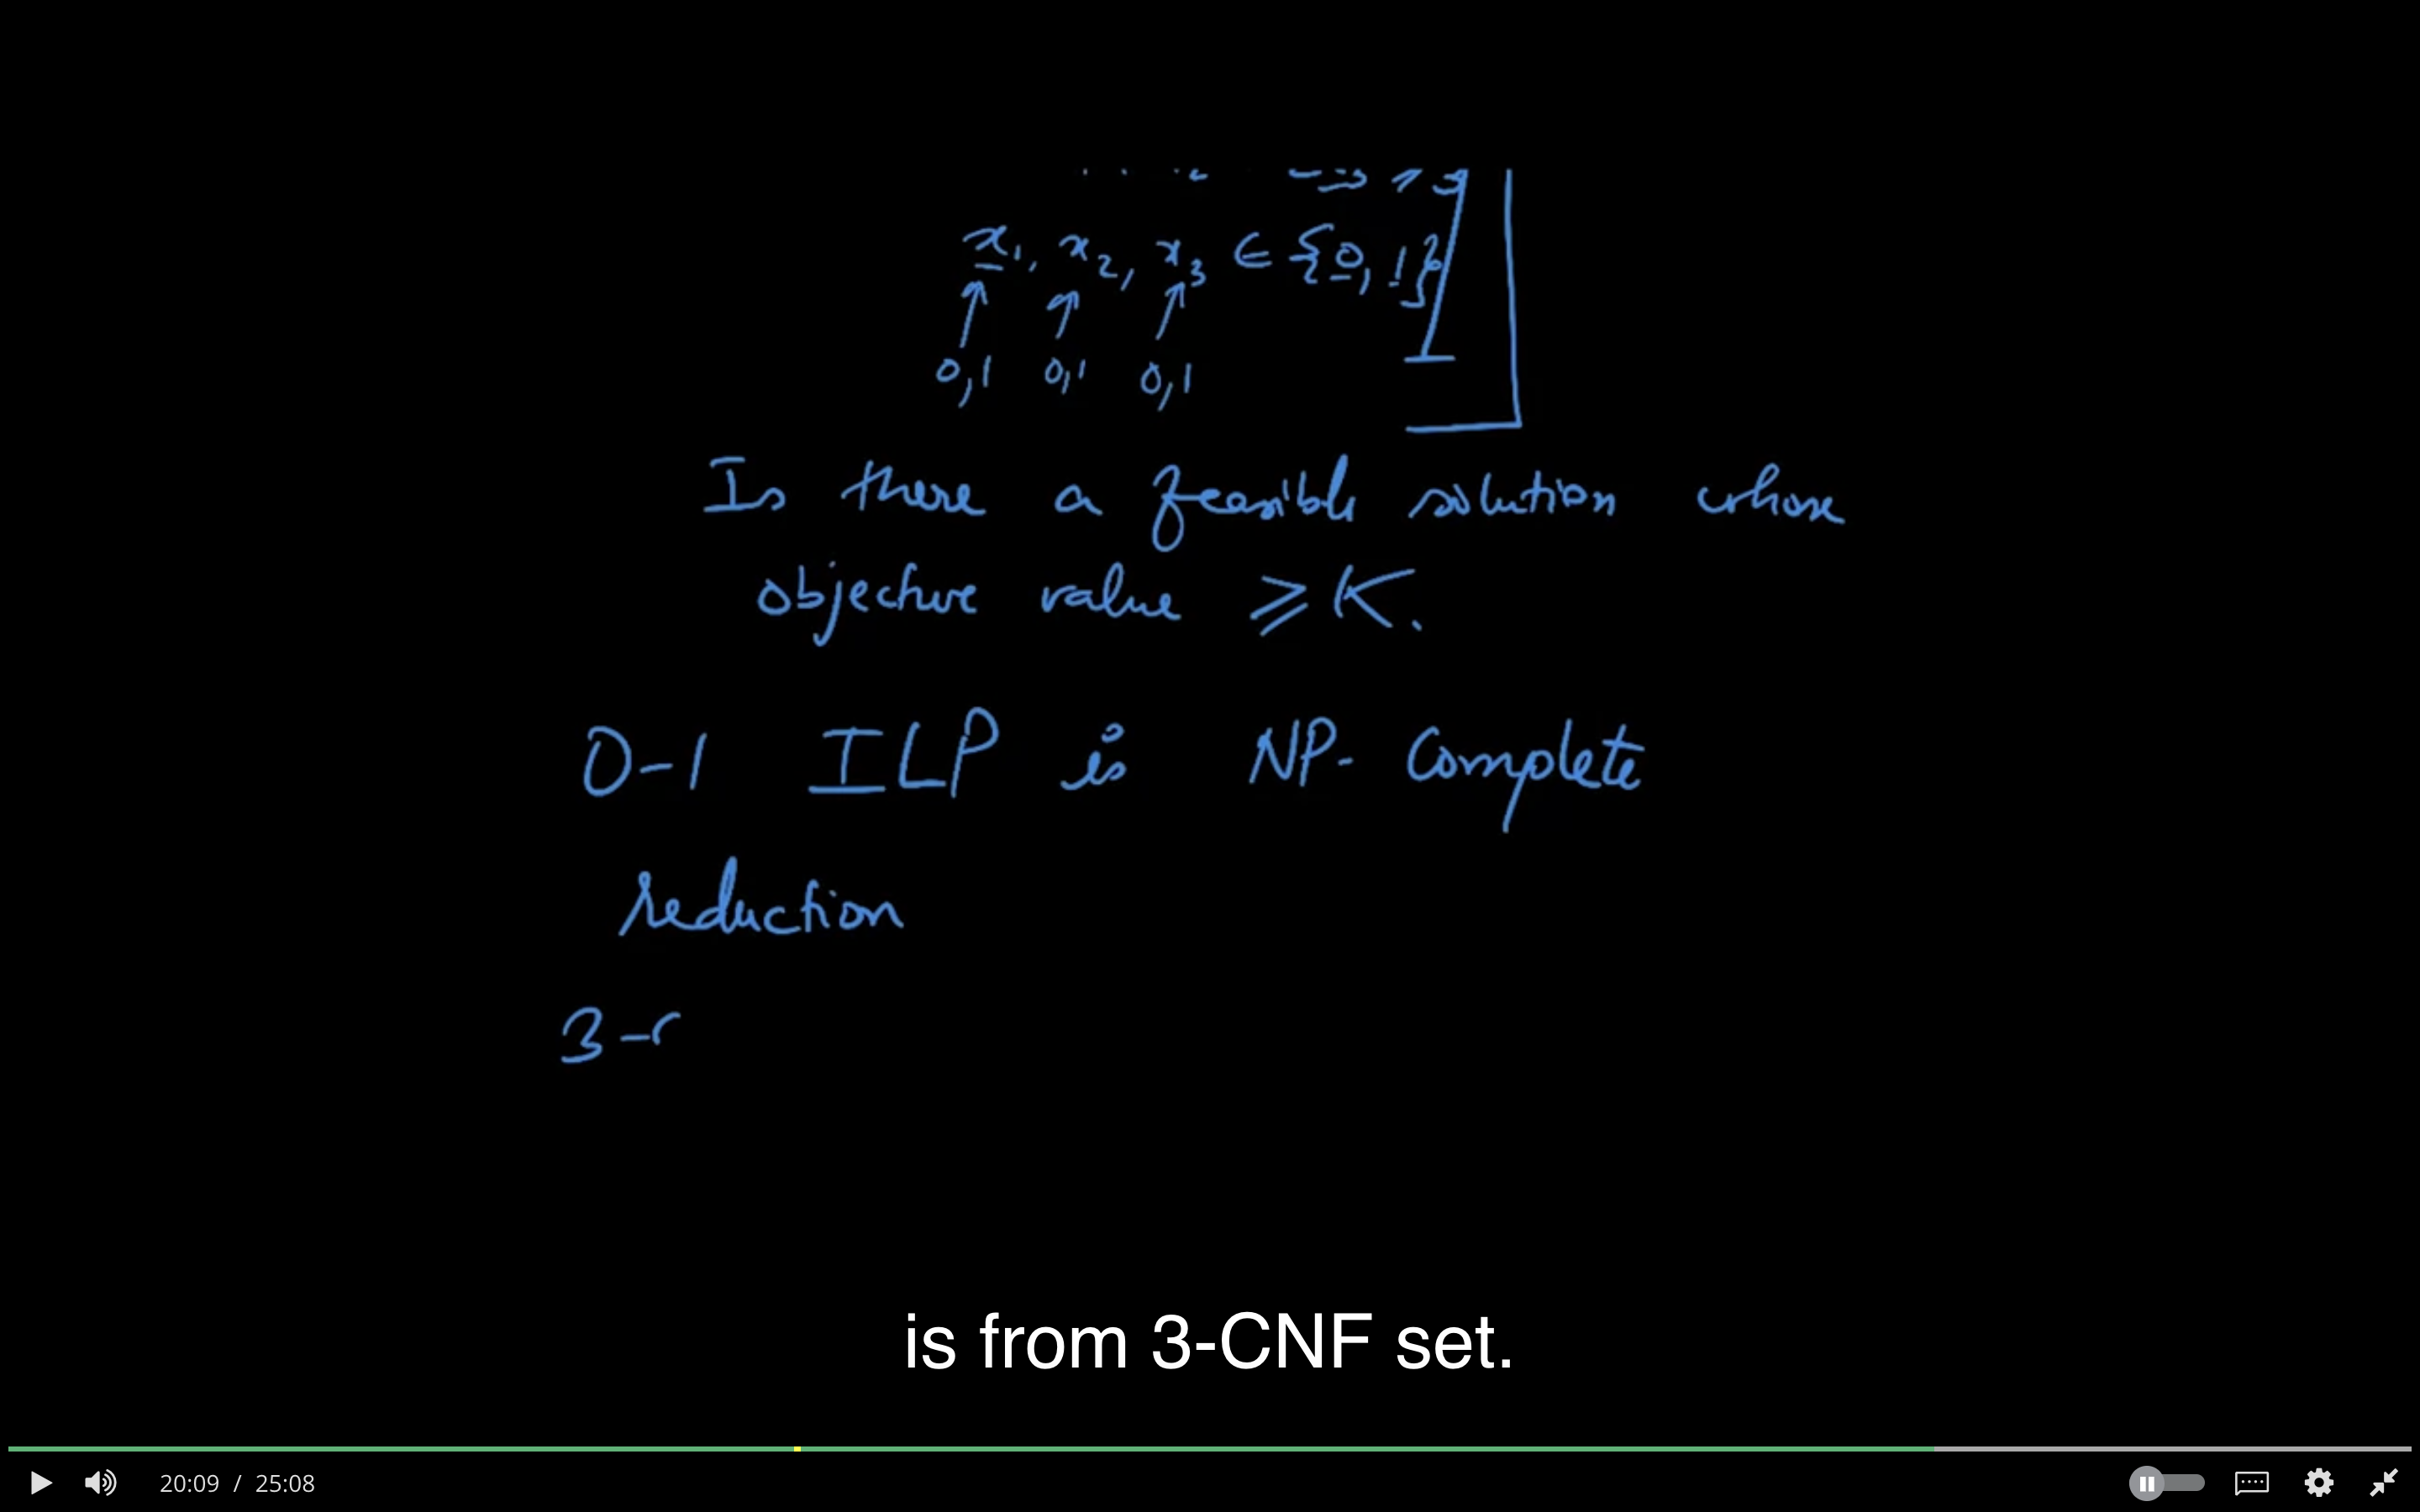 x₁, x₂, x₃ ∈ {0, 1}
0,1 0,1 0,1
Is there a feasible solution whose
objective value ≥ K.
0-1 ILP is NP-Complete
reduction
3-C
is from 3-CNF set.
20:09 / 25:08